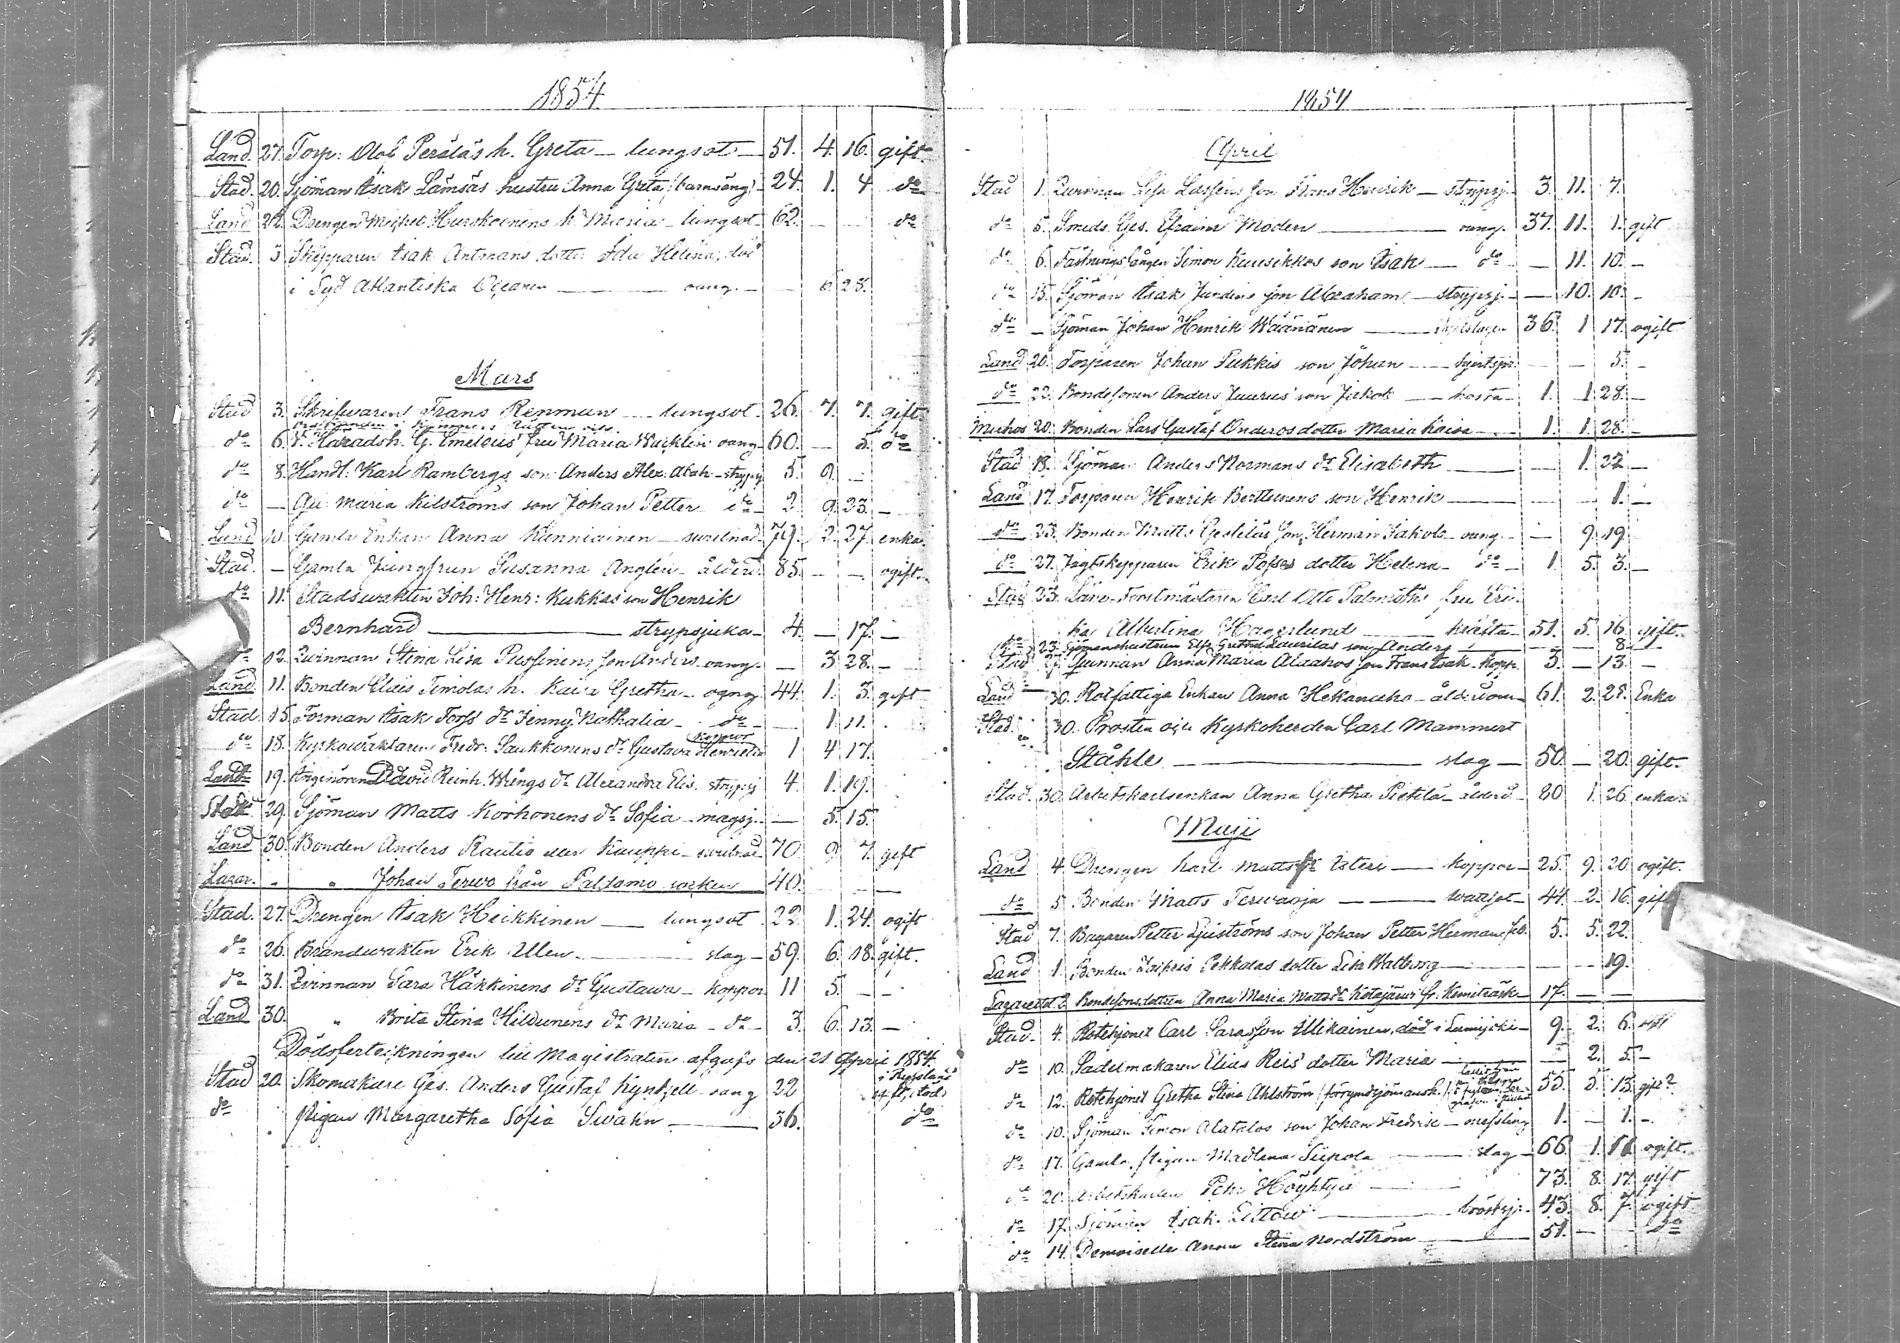 1854
Land. 27. Torp: Olof Peräläs h. Greta — lungsot — 51. 4. 16. gift
Stad. 20. Sjöman Isak Lämsäs hustru Anna Greta (barnsäng) — 24. 1. 4. do
Land. 22. Drengen Michel Hurskainens h. Maria — lungsot 62. — — do
Stad. 3. Skepparen Isak Antmans dotter Ida Helena, död
i Syd Atlantiska Oceanen — oang. — — 6. 28.
Mars
Stad 3. Skrifvaren Frans Renman — lungsot. 26. 7. 7. gift
do 6. V. Häradsh. G. Emeleus' fru Maria Wicklin oang. 60. — 5. do
do 8. Handl. Karl Rambergs son Anders Alex. — strypsj 5. 9. —
do — Qu. Maria Kilströms son Johan Petter — do — 2. 9. 23. —
Land 10. Gamla Enkan Anna Kinniainen — 79. 2. 27. enka.
Stad. — Gamla Jungfrun Susanna — ålderd. 85. — — ogift.
do 11. Stadswakten Joh: Henr: Kukkas son Henrik
Bernhard — strypsjuka — 4. — 17. —
do 12. Qvinnan Stina Lisa son Anders oang. — 3. 28. —
Land. 11. Bonden h. Kaisa Gretha — oang. 44. 1. 3. gift
Stad 15. Forman Isak Torfs dr Jenny Nathalia — do — — 1. 11.
koppor
do 18. Kyrkowäktaren Fredr. Saukkonens dr Gustava Henrietta 1 4. 17.
Land 19. Reinh. Wrengs dr Alexandra Elis. strypsj 4. 1. 19.
Stad 29. Sjöman Matts Korhonens dr Sofia — magsj. — 5. 15.
Land 30. Bonden Anders Rautio eller Kauppi — 70. 9. 7. gift
Lazar. " " Johan Terwo från Paldamo socken 40. — —
Stad. 27. Drengen Isak Heikkinen — lungsot. 22. 1. 24. ogift
do 26. Brandwakten Erik Ullen — slag — 59. 6. 18. gift.
do 31. Qvinnan Sara Häkkinens dr Gustawa — koppor 11 5. — —
Land 30. " Brita Stina Hildunens dr Maria — do — 3. 6. 13. —
Dödsförteckningen till Magistraten afgafs den 21 April 1854.
Stad 20. Skomakare Ges. Anders Gustaf — oang 22
do Pigan Margaretha Sofia Swahn — 36. do
1854
April
Stad 1. Qvinnan Lisa son Frans Henrik — strypsj. 3. 11. 7.
do 5. Smeds Ges. Efraim Modén — oang. 37. 11. 1. gift
do 6. Fästningsfången Simon Kuusikkos son Isak — do — — 11. 10. —
do 15. Sjöman Isak Jundins son Abraham — strypsj. — — 10. 10. —
do — Sjöman Johan Henrik Wäänänen — 36. 1 17. ogift
Land 20. Torparen Johan Pukkis son Johan — — — 5. —
do 22. Bondesonen Anders Juurus' son Jakob — hosta — 1. 1 28. —
Muhos 20. Bonden Lars Gustaf Onderos dotter Maria Kaisa — 1. 1 28. —
Stad 18. Sjöman Anders Normans dr Elisabeth — — 1. 22. —
Land 17. Torparen Henrik son Henrik — — — 1. —
do 23. Bonden Matts son Herman Jakob — oang. — 9. 19.
do 27. Jagtskepparen Erik dotter Helena — do — 1. 5. 3. —
Stad 23. Läns-Forstmästaren Carl Otto fru Eri-
ka Albertina Hagerlund — kräfta — 51. 5. 16. gift.
do 23. Sjömanshustrun Gretha Laurilas son Anders — — — 8. —
Stad 27. Qvinnan Anna Maria Alaahos son Frans Isak — kopp. 3. — 13. —
Land 30. Rotfattiga Enkan Anna Hekanaho — ålderdom — 61. 2. 27. Enka
Stad. 30. Prosten och Kyrkoherden Carl Mammert
Ståhle — slag — 50. — 20. gift.
Stad 30. Arbetskarlsenkan Anna Gretha Pietilä — ålderd. — 80 1. 26 enka
Maji
Land 4. Drengen Karl — koppor — 25. 9. 20 ogift.
do 5. Bonden Matts Terwaoja — wattsot — 44. 2. 16. gift
Stad 7. Bagaren Petter Ljuströms son Johan Petter Herman, feb. 5. 5. 22.
Land 1. Bonden Zaipris Pekkalas dotter Lisa Walborg — — — 19.
Lazarettet 2. Anna Maria Mattsdr Kotajärvi fr. Kemiträsk — 17. — —
Stad 4. Rotehjonet Carl Ullikainen, död i Lumijoki — 9. 2. 6.
do 10. Sadelmakaren Elias Reis' dotter Maria — — 2. 5. —
do 12. Rotehjonet Gretha Stina Ahlström 55. 3. 15. gift?
do 10. Sjöman Simon Alatalos son Johan Fredric — messling 1. — 1. —
do 17. Gamla Pigan Madlena Siepola — slag — 66. 1. 11 ogift.
do 20. Arbetskarlen Pehr Höyhtyä — 73. 8. 17. gift
do 17. Sjöman Isak — bröstsj. — 43. 8. 7. ogift
do 14. Demoiselle Anna Stina Nordström — 51. — — do